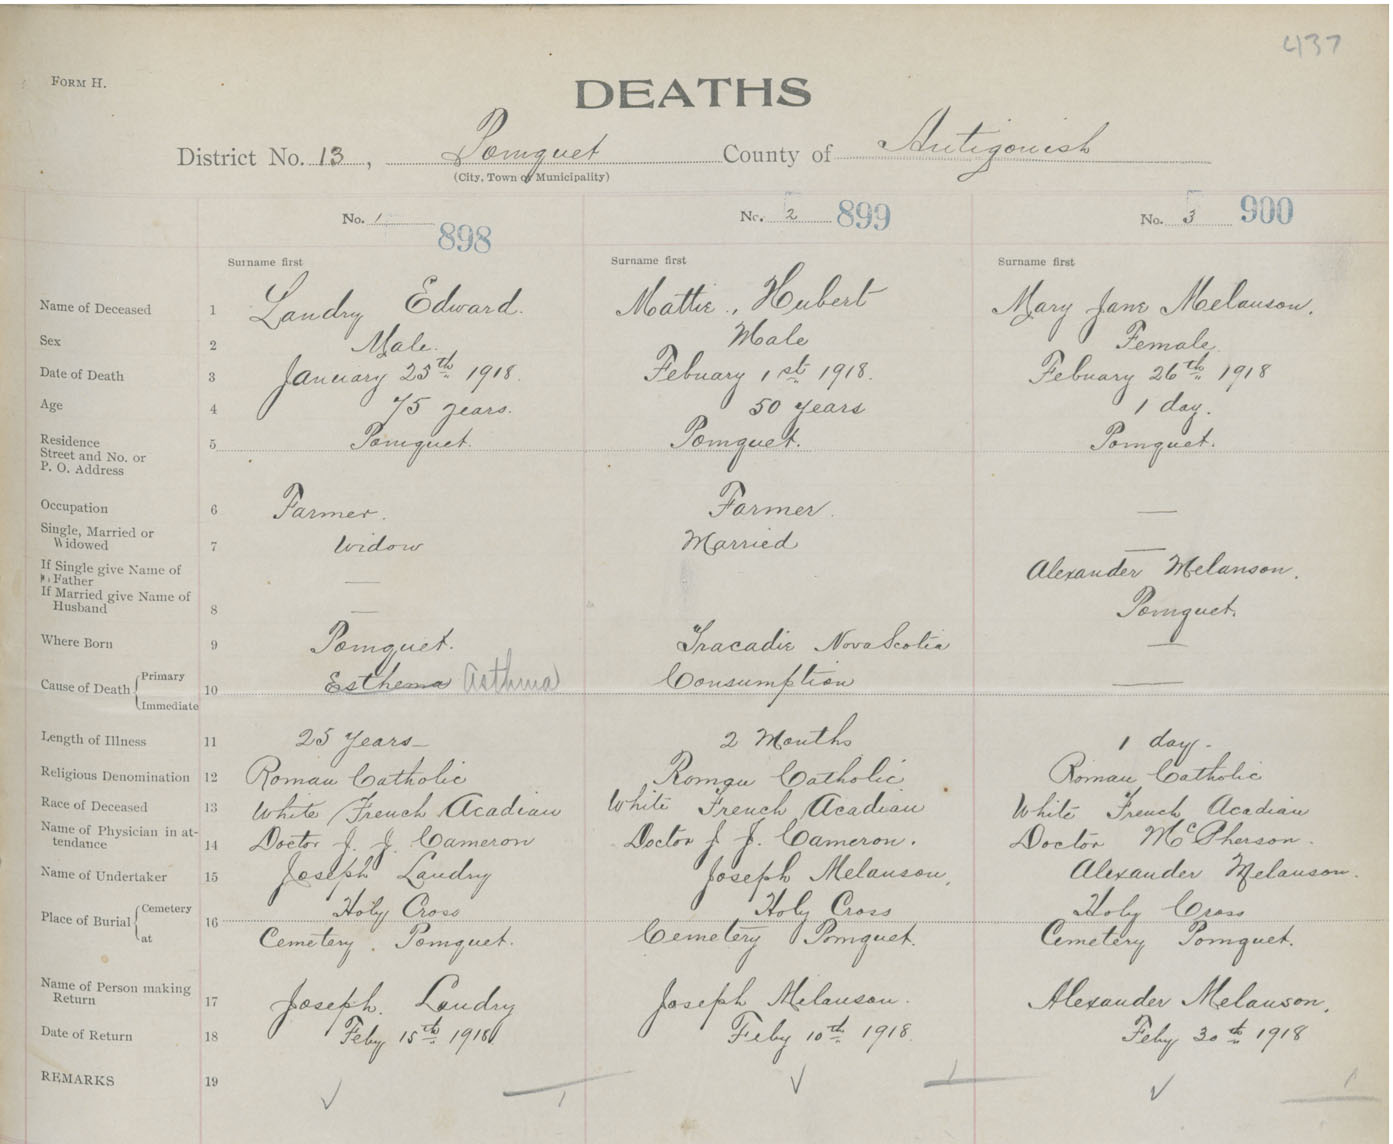 437
FORM H.
DEATHS
District No. 13, Pomquet County of Antigonish
(City, Town or Municipality)
No. 1 898 No. 2 899 No. 3 900
Surname first Surname first Surname first
Name of Deceased 1 Landry Edward. Mattie, Hubert Mary Jane Melanson.
Sex 2 Male. Male Female
Date of Death 3 January 25th 1918. Febuary 1st 1918. Febuary 26th 1918
Age 4 75 years. 50 years 1 day.
Residence
Street and No. or
P. O. Address 5 Pomquet. Pomquet. Pomquet.
Occupation 6 Farmer. Farmer. —
Single, Married or
Widowed 7 Widow Married —
If Single give Name of
Father — Alexander Melanson.
If Married give Name of
Husband 8 — Pomquet.
Where Born 9 Pomquet. Tracadie Nova Scotia —
Cause of Death Primary
Immediate 10 Esthema Asthma Consumption —
Length of Illness 11 25 years— 2 Months 1 day.
Religious Denomination 12 Roman Catholic Roman Catholic Roman Catholic
Race of Deceased 13 White French Acadian White French Acadian White French Acadian
Name of Physician in at-
tendance 14 Doctor J. J. Cameron Doctor J. J. Cameron. Doctor McPherson.
Name of Undertaker 15 Joseph Landry Joseph Melanson, Alexander Melanson.
Place of Burial Cemetery
at 16 Holy Cross Holy Cross Holy Cross
Cemetery. Pomquet. Cemetery Pomquet. Cemetery Pomquet.
Name of Person making
Return 17 Joseph. Landry Joseph Melanson. Alexander Melanson.
Date of Return 18 Feby 15th 1918 Feby 10th 1918. Feby 30th 1918
REMARKS 19